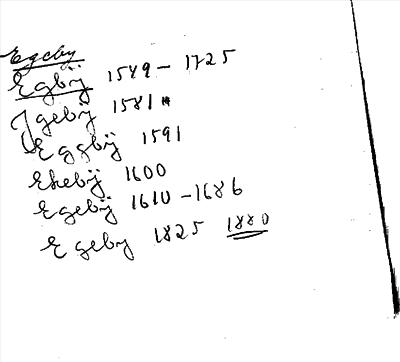 Egeby
Egbÿ 1549 - 1725
Jgebÿ 1581
Eggbÿ 1591
Ehebÿ 1600
Egebÿ 1610 - 1686
Egeby 1825 1880